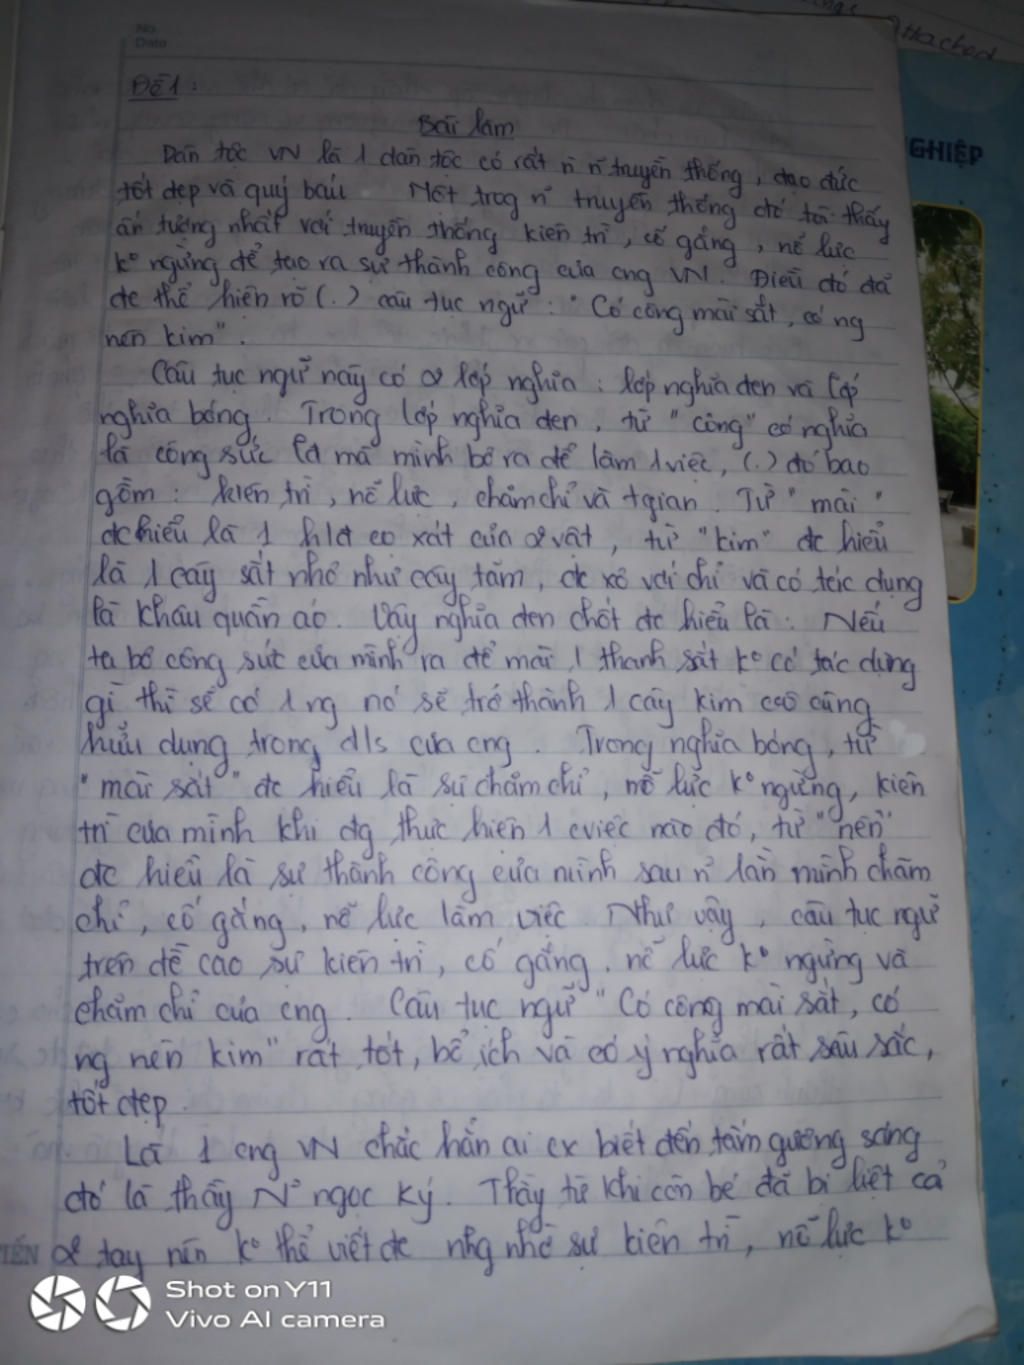 Attached
No.
Date
GHIỆP
Đề 1 :
Bài làm
Dân tộc VN là 1 dân tộc có rất n n truyền thống, đạo đức
tốt đẹp và quý báu Một trog n truyền thống đó tôi thấy
ấn tượng nhất với truyền thống kiên trì, cố gắng, nỗ lực
k° ngừng để tạo ra sự thành công của cng VN. Điều đó đã
đc thể hiện rõ (.) câu tục ngữ : "Có công mài sắt, có ng
nên kim".
Câu tục ngữ này có 2 lớp nghĩa : lớp nghĩa đen và lớp
nghĩa bóng. Trong lớp nghĩa đen, từ "công" có nghĩa
là công sức lđ mà mình bỏ ra để làm 1 việc, (.) đó bao
gồm : kiên trì, nỗ lực, chăm chỉ và tgian. Từ "mài"
đc hiểu là 1 hđ cọ xát của 2 vật, từ "kim" đc hiểu
là 1 cây sắt nhỏ như cây tăm, đc xỏ với chỉ và có tác dụng
là khâu quần áo. Vậy nghĩa đen chốt đc hiểu là : Nếu
ta bỏ công sức của mình ra để mài 1 thanh sắt k° có tác dụng
gì thì sẽ có 1 ng nó sẽ trở thành 1 cây kim cũng
hữu dụng trong đ/s của cng. Trong nghĩa bóng, từ
"mài sắt" đc hiểu là sự chăm chỉ, nỗ lực k° ngừng, kiên
trì của mình khi đg thực hiện 1 cviệc nào đó, từ "nên"
đc hiểu là sự thành công của mình sau n lần mình chăm
chỉ, cố gắng, nỗ lực làm việc. Như vậy, câu tục ngữ
trên đề cao sự kiên trì, cố gắng, nỗ lực k° ngừng và
chăm chỉ của cng. Câu tục ngữ "Có công mài sắt, có
ng nên kim" rất tốt, bổ ích và có ý nghĩa rất sâu sắc,
tốt đẹp.
Là 1 cng VN chắc hẳn ai cx biết đến tấm gương sáng
đó là thầy N° ngọc Ký. Thầy từ khi còn bé đã bị liệt cả
2 tay nên k° thể viết đc nhg nhờ sự kiên trì, nỗ lực k°
Shot on Y11
Vivo AI camera